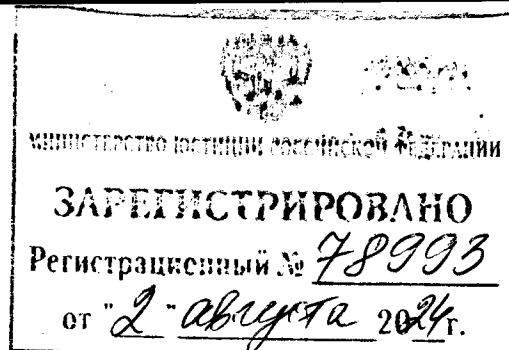 МИНИСТЕРСТВО ЮСТИЦИИ РОССИЙСКОЙ ФЕДЕРАЦИИ
ЗАРЕГИСТРИРОВАНО
Регистрационный № 78993
от "2" августа 2024г.